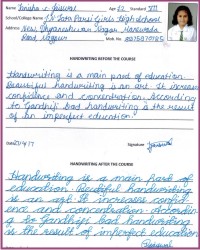 Name Age 12 Standard VII
School/College Name J.N. Tata Parsi Girls High School
Address New Dnyaneshwar Nagar Manewada
Road Nagpur Mob. No.
HANDWRITING BEFORE THE COURSE
Handwriting is a main part of education.
Beautiful handwriting is an art. It increase
confidence and concentration. According
to Gandhiji bad handwriting is the result
of an imperfect education.
Signature
HANDWRITING AFTER THE COURSE
Handwriting is a main part of
education. Beautiful handwriting
is an art. It increases confid-
ence and concentration. Accordin
g to Gandhiji bad handwriting
is the result of imperfect education